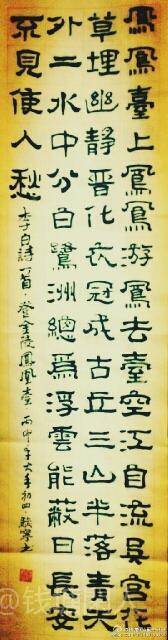 鳳凰臺上鳳凰游鳳去臺空江自流吳宮
草埋幽靜晉代衣冠成古丘三山半落青天
外二水中分白鷺洲總為浮雲能蔽日長安
不見使人愁
李白詩一首登金陵鳳凰臺丙申年大年初四